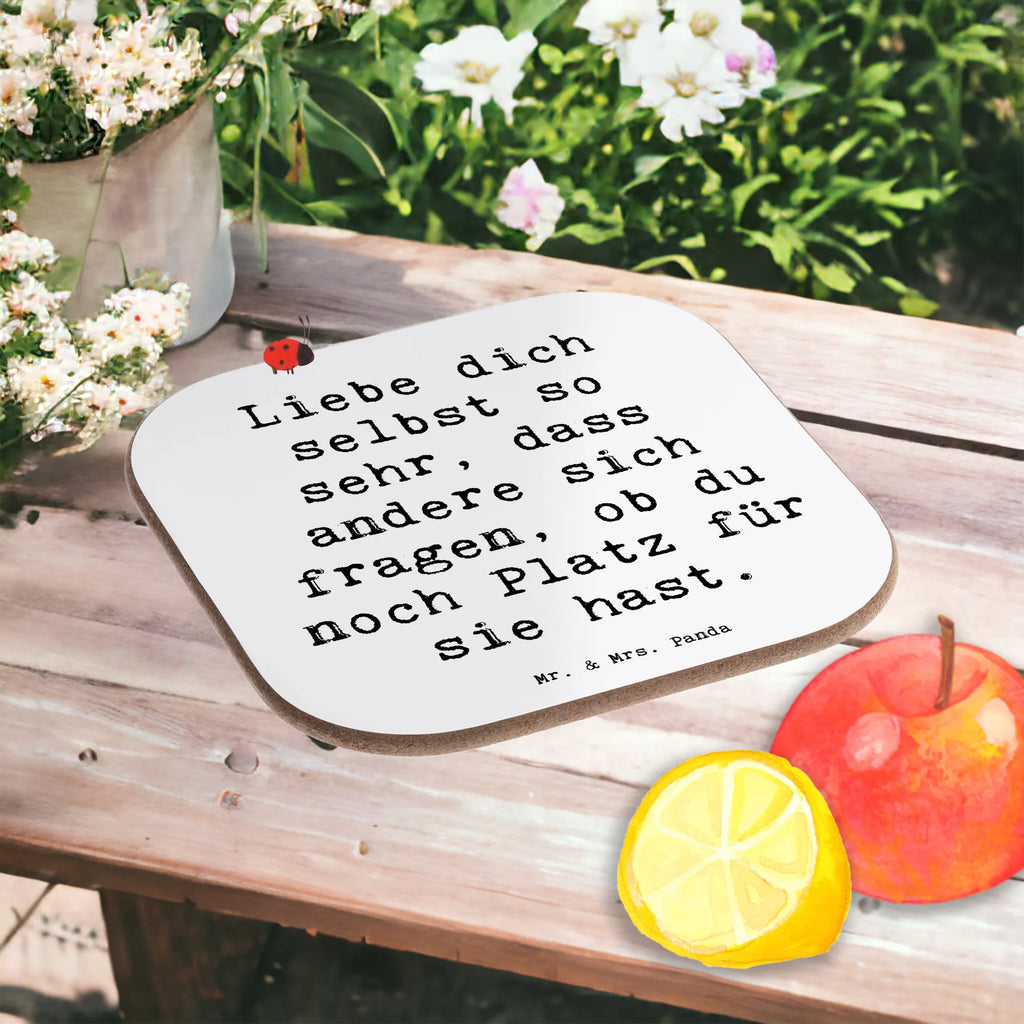 Liebe dich
selbst so
sehr, dass
andere sich
fragen, ob du
noch Platz für
sie hast.
Mr. & Mrs. Panda